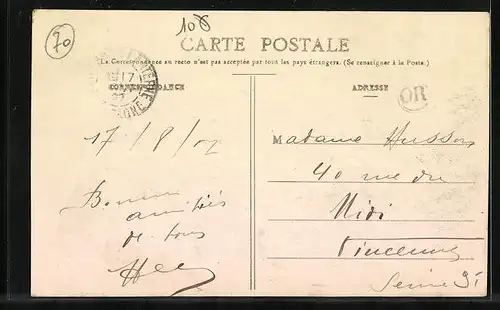 70
10
CARTE POSTALE
(La Correspondance au recto n'est pas acceptée par tous les pays étrangers. (Se renseigner à la Poste.)
CORRESPONDANCE
ADRESSE
OR
17/8/07
Madame Husson
40 rue du
Midi
Vincennes
Seine
Bonnes
amitiés
de tous